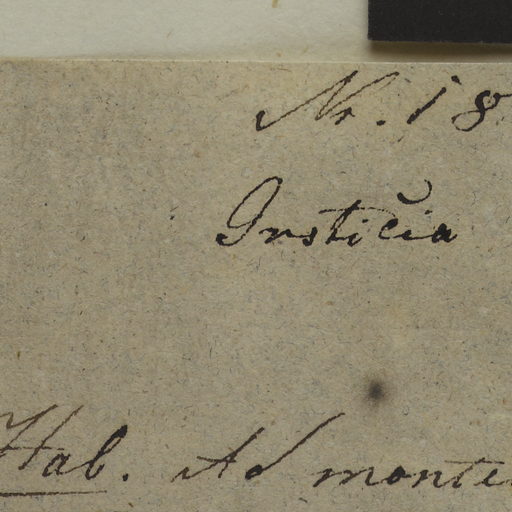 Nr. 18
Justicia
Hab. Ad monte